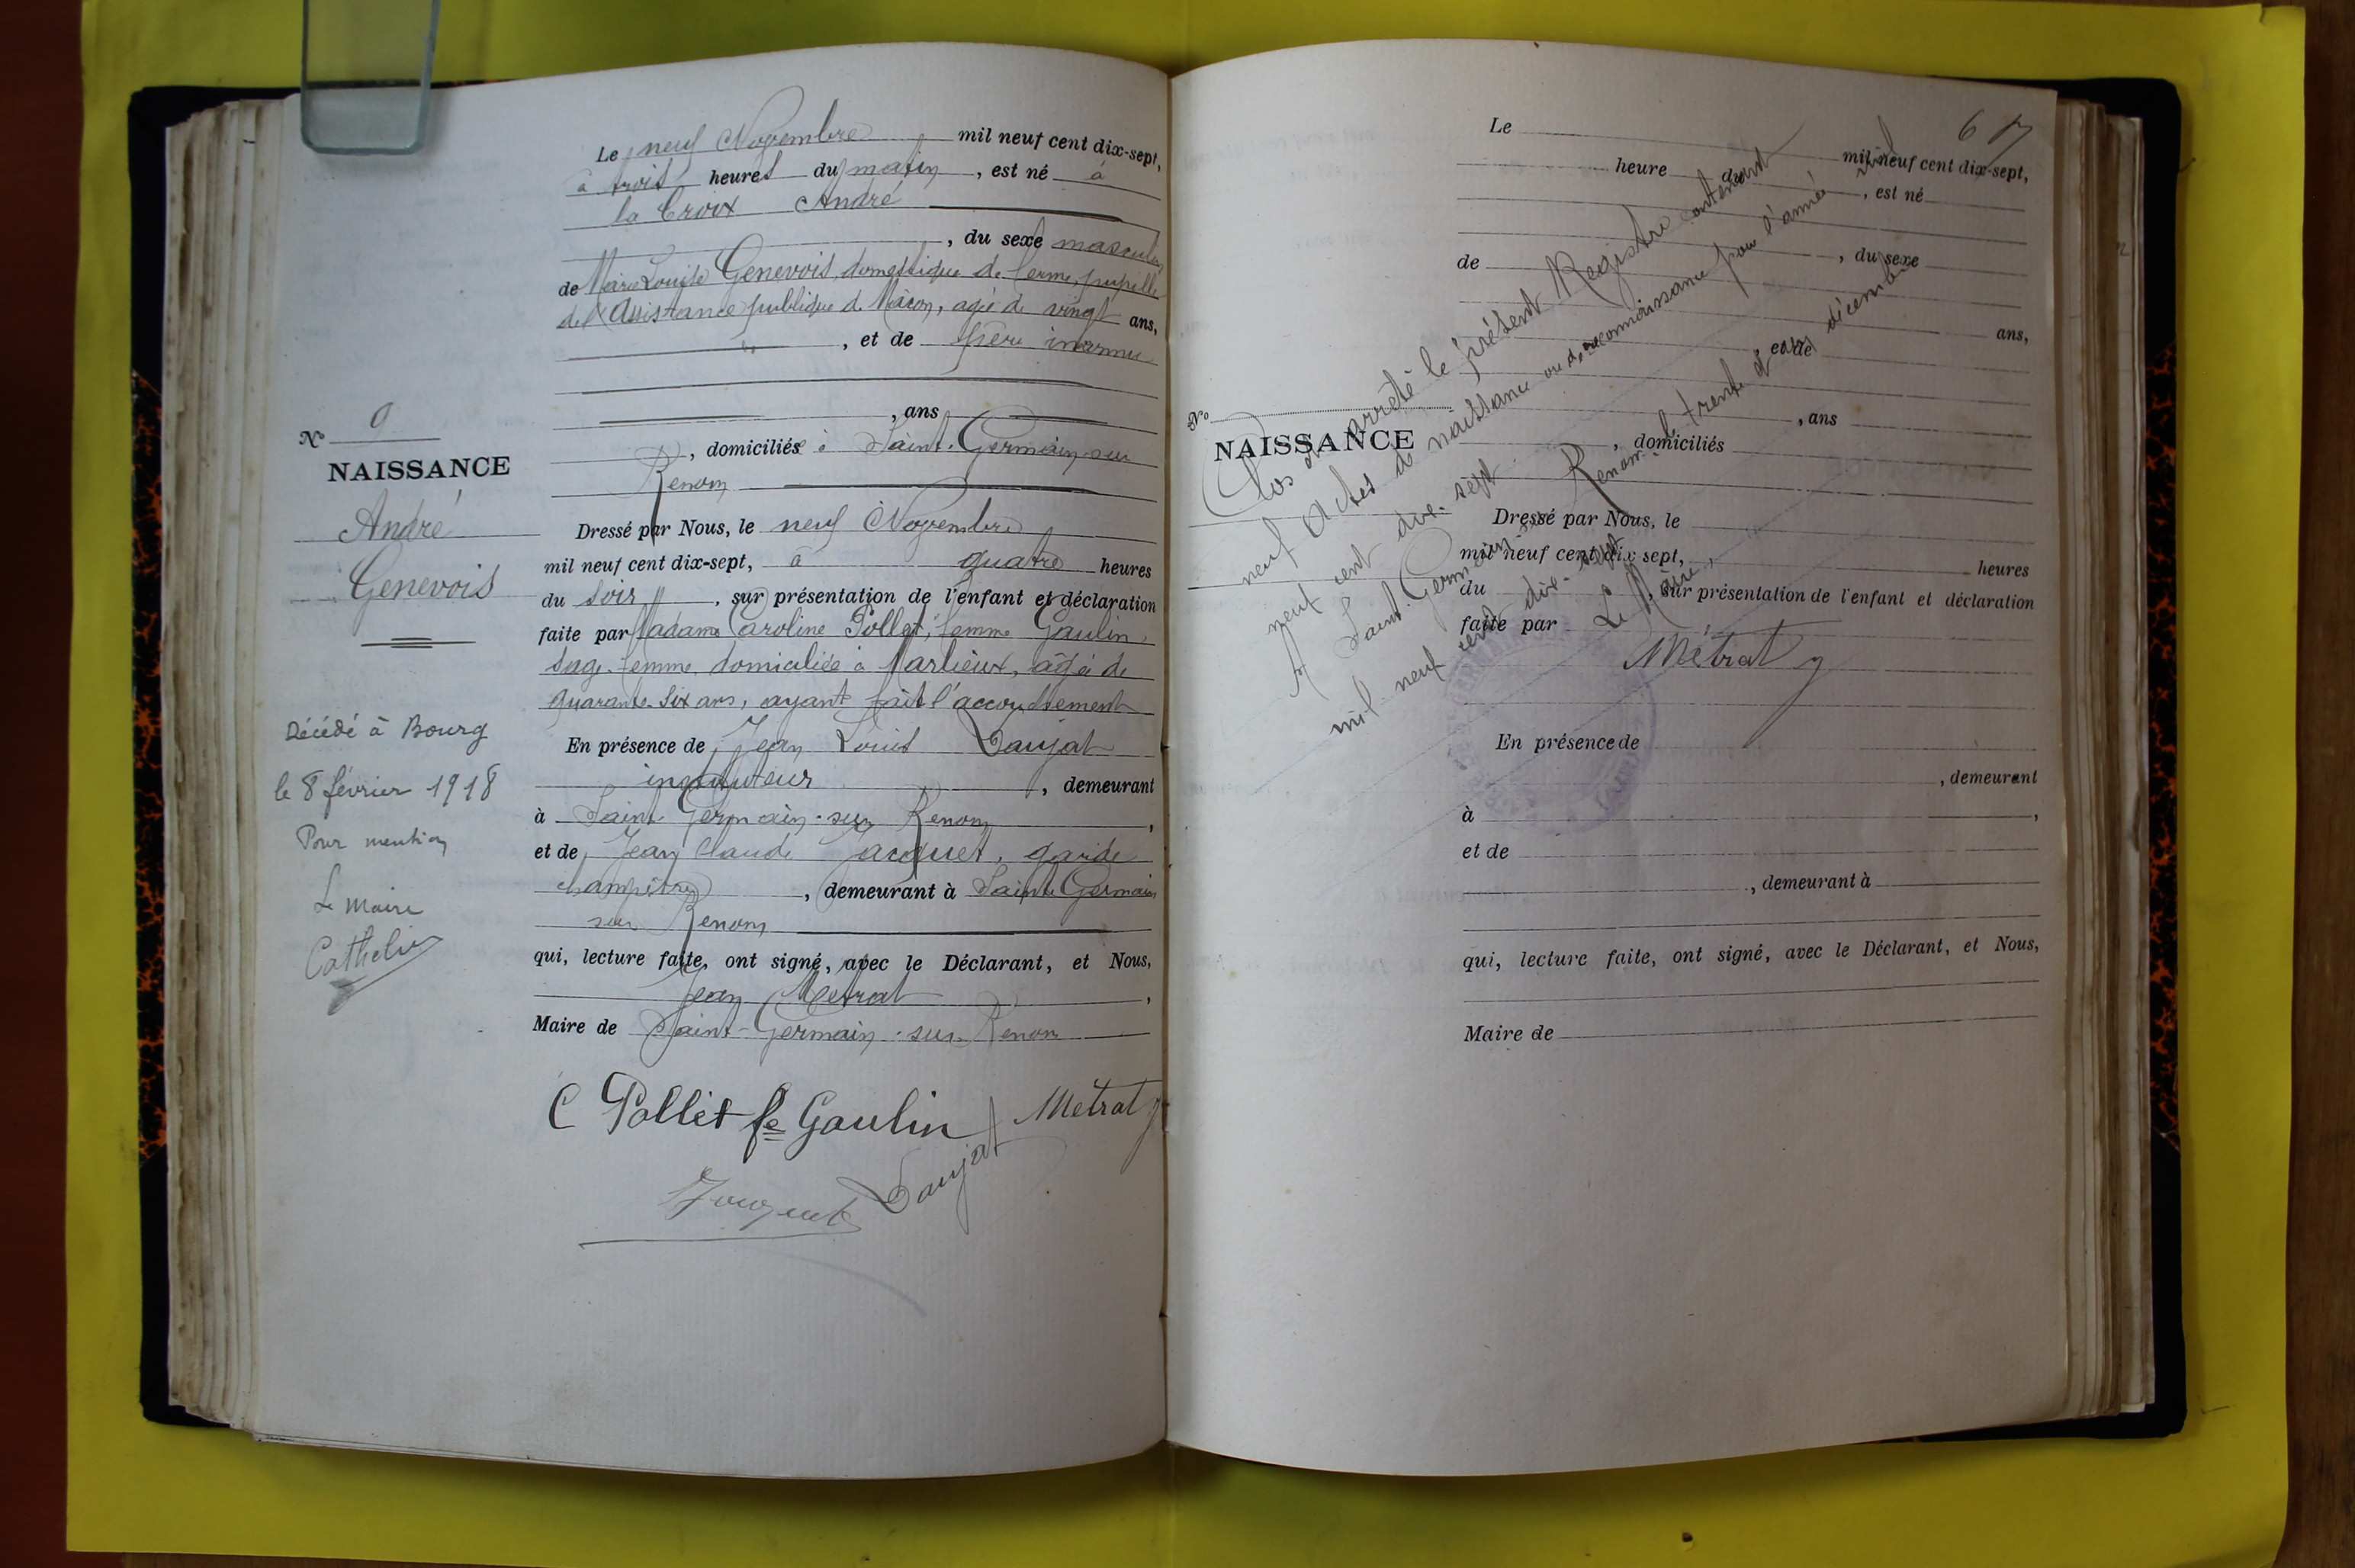 N° 9
NAISSANCE
André
Genevois
Décédé à Bourg
le 8 février 1918
Pour mention
Le maire
Cathelin
Le neuf Novembre mil neuf cent dix-sept,
à trois heures du matin, est né à
la Croix André
, du sexe masculin
de Marie Louise Genevois, domestique de ferme, pupille
de l'Assistance publique de Mâcon, agée de vingt ans,
, et de père inconnu
, ans
, domiciliés à Saint-Germain-sur
Renom
Dressé par Nous, le neuf Novembre
mil neuf cent dix-sept, à quatre heures
du soir, sur présentation de l'enfant et déclaration
faite par Madame Caroline Pollet, femme Gaulin,
sage-femme, domiciliée à Marlieux, âgée de
quarante-six ans, ayant fait l'accouchement
En présence de Jean Louis Daujat
instituteur, demeurant
à Saint-Germain-sur Renom,
et de Jean Claude Jacquet, garde
champêtre, demeurant à Saint Germain
sur Renom
qui, lecture faite, ont signé, avec le Déclarant, et Nous,
Jean Metrat,
Maire de Saint-Germain-sur-Renom
C Pollet fe Gaulin
Métrat J
Daujat
6
Le mil neuf cent dix-sept,
heure du, est né
de, du sexe
ans,
, et de
, ans
N°
NAISSANCE
, domiciliés
Dressé par Nous, le
mil neuf cent dix-sept, heures
du, sur présentation de l'enfant et déclaration
faite par
En présence de
, demeurant
à,
et de
, demeurant à
qui, lecture faite, ont signé, avec le Déclarant, et Nous,
Maire de
Clos et arrêté le présent Registre contenant
neuf actes de naissance ou de reconnaissance pour l'année mil
neuf cent dix-sept
A Saint-Germain-sur Renom le trente et un décembre
mil neuf cent dix-sept
Le Maire,
Métrat J